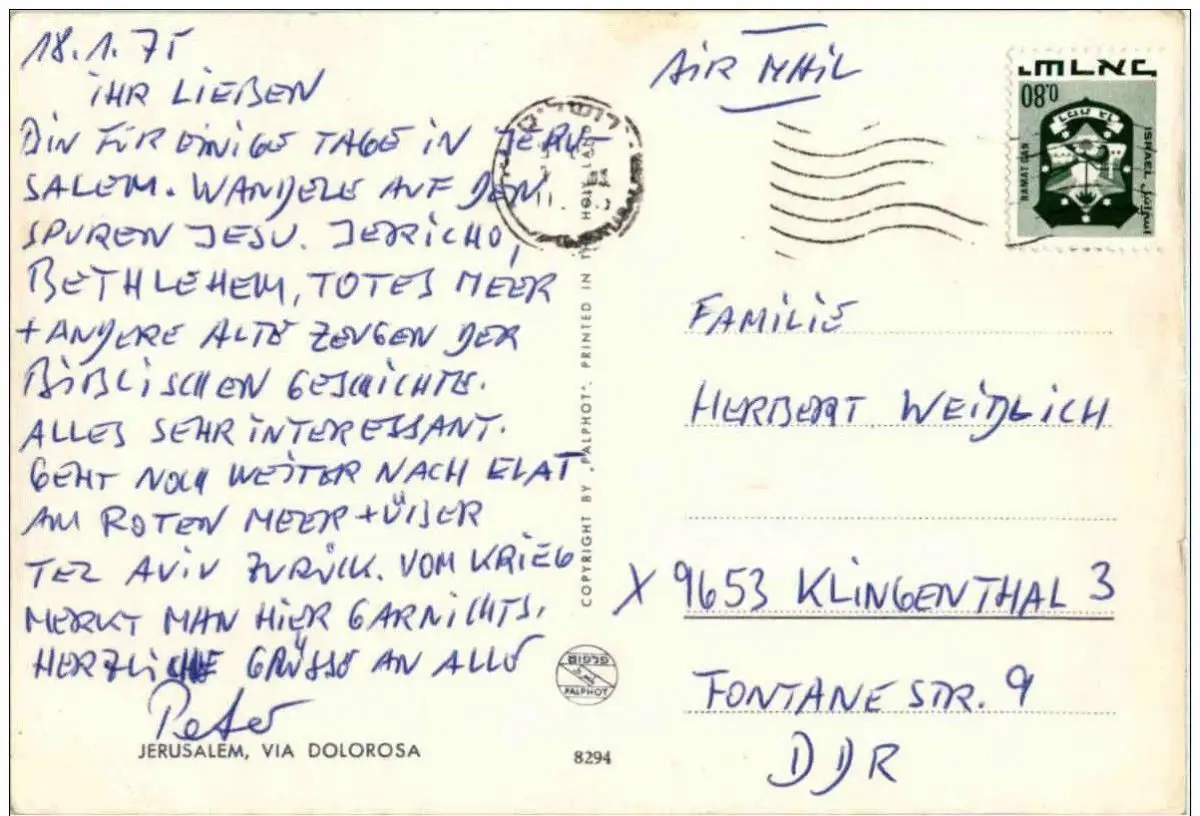 18.1.75
IHR LIEBEN
BIN FÜR EINIGE TAGE IN JERU-
SALEM. WANDELE AUF DEN
SPUREN JESU. JERICHO,
BETHLEHEM, TOTES MEER
+ ANDERE ALTE ZEUGEN DER
BIBLISCHEN GESCHICHTE.
ALLES SEHR INTERESSANT.
GEHT NOCH WEITER NACH ELAT
AM ROTEN MEER + ÜBER
TEL AVIV ZURÜCK. VOM KRIEG
MERKT MAN HIER GARNICHTS.
HERZLICHE GRÜSSE AN ALLE
Peter
JERUSALEM, VIA DOLOROSA
ירושלים
COPYRIGHT BY „PALPHOT". PRINTED IN THE HOLY LAND
פלפוט
PALPHOT
8294
AIR MAIL
ישראל
0.80
RAMAT GAN
ISRAEL
اسرائيل
FAMILIE
HERBERT WEIDLICH
X 9653 KLINGENTHAL 3
FONTANE STR. 9
DDR